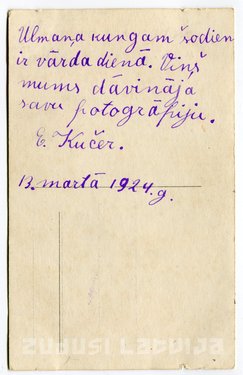 Ulmaņa kungam šodien
ir vārda dienā. Viņš
mums dāvināja
savu fotogrāfiju.
E. Kučer.
13. martā 1924. g.
ZUDUSI LATVIJA